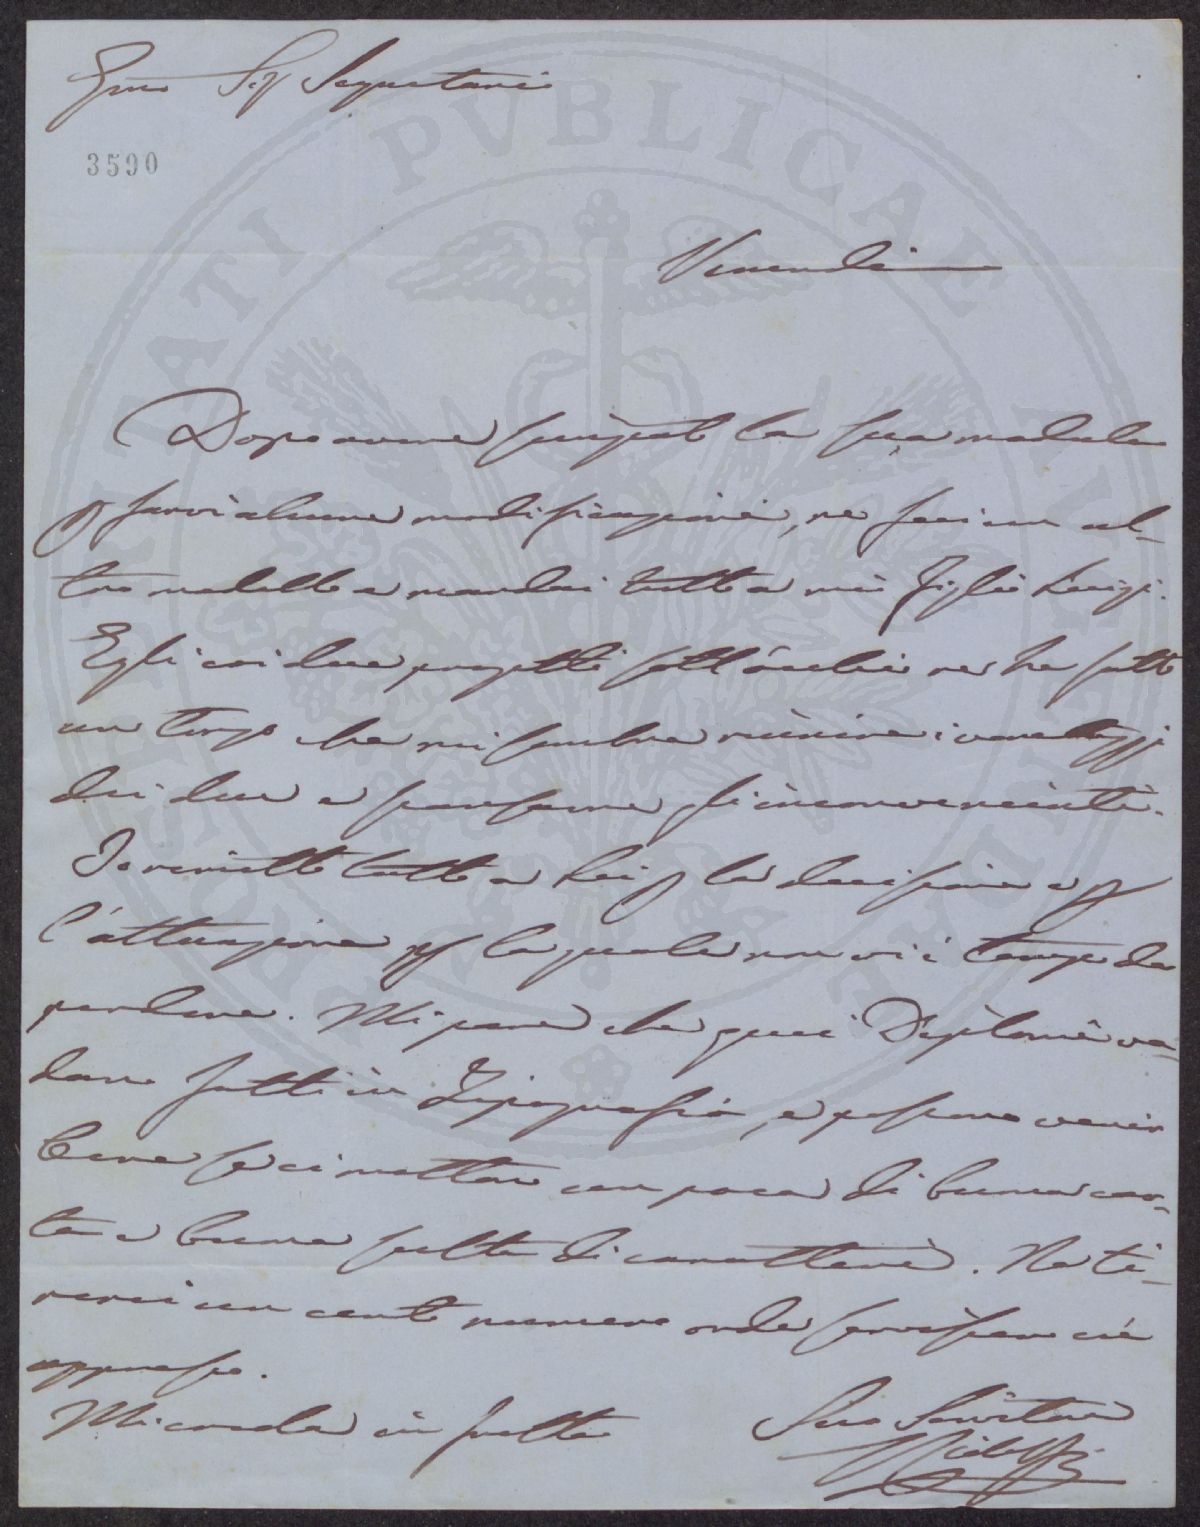 Emo Sig Segretario
3590
Venerdi
Dopo avere sciupato la sua modula
p farvi alcune modificazioni, ne feci un al-
tro modello e mandai tutto a mio Figlio Luigi.
Egli coi due progetti sott'occhio ne ha fatto
un terzo che mi sembra riunire i vantaggi
dei due e scansarne gl'inconvenienti.
Io rimetto tutto a Lei p la decisione e p
l'attuazione p la quale non vi è tempo da
perdere. Mi pare che quei Diplomi va-
dano fatti in Tipografia, e possono venir
bene se ci mettono un poca di buona car-
ta e buona scelta di caratteri. Ne ti-
rerei un certo numero onde servissero in
appresso.
Mi creda in fretta
Suo Servitore
Ridolfi
PVBLICAE